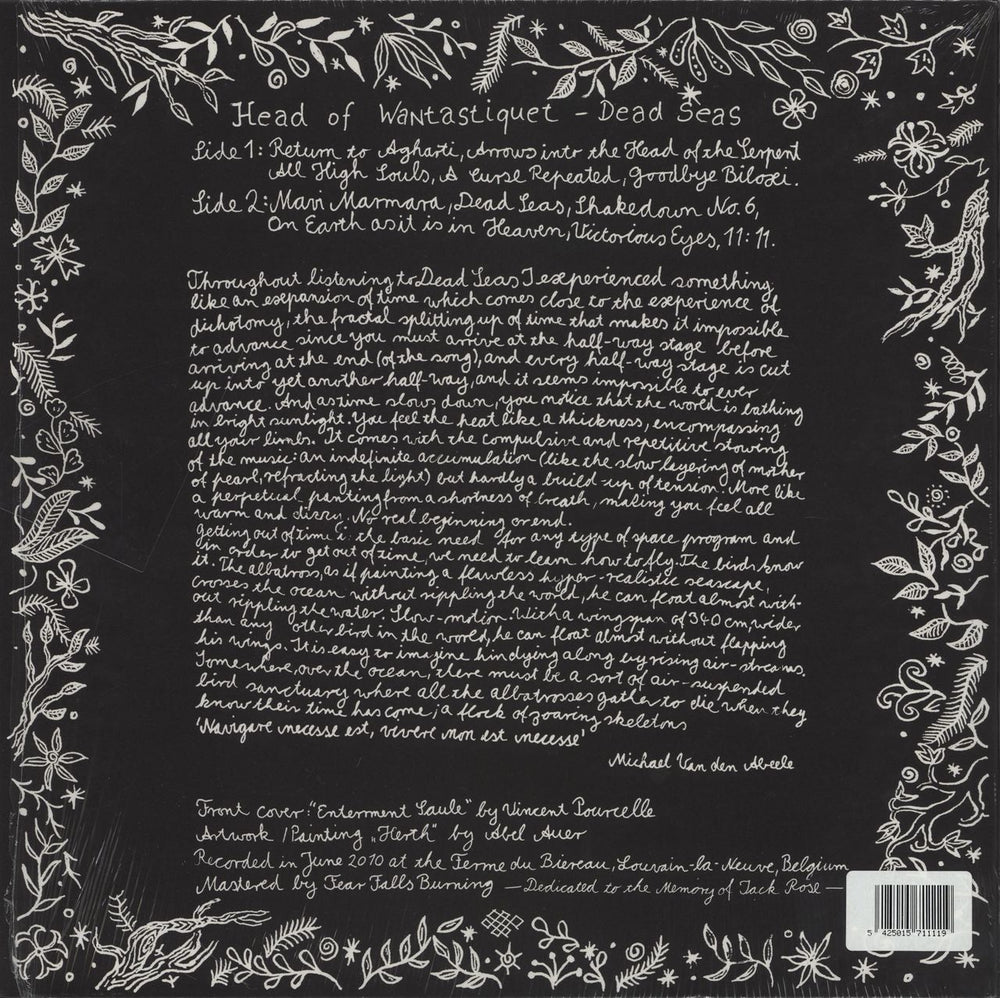 Head of Wantastiquet – Dead Seas
Side 1: Return to Agharti, Arrows into the Head of the Serpent
All High Souls, A Curse Repeated, Goodbye Biloxi.
Side 2: Mavi Marmara, Dead Seas, Shakedown No. 6,
On Earth as it is in Heaven, Victorious Eyes, 11:11.
Throughout listening to Dead Seas I experienced something
like an expansion of time which comes close to the experience of
dichotomy, the fractal splitting up of time that makes it impossible
to advance since you must arrive at the half-way stage before
arriving at the end (of the song), and every half-way stage is cut
up into yet another half-way, and it seems impossible to ever
advance. And as time slows down, you notice that the world is bathing
in bright sunlight. You feel the heat like a thickness, encompassing
all your limbs. It comes with the compulsive and repetitive stowing
of the music: an indefinite accumulation (like the slow layering of mother
of pearl, refracting the light) but hardly a build-up of tension. More like
a perpetual panting from a shortness of breath, making you feel all
warm and dizzy. No real beginning or end.
Getting out of time is the basic need for any type of space program and
in order to get out of time, we need to learn how to fly. The birds know
it. The albatross, as if painting a flawless hyper-realistic seascape,
crosses the ocean without rippling the world, he can float almost with-
out rippling the water. Slow-motion. With a wingspan of 340 cm, wider
than any other bird in the world, he can float almost without flapping
his wings. It is easy to imagine him dying along uprising air-streams.
Somewhere, over the ocean, there must be a sort of air-suspended
bird sanctuary where all the albatrosses gather to die when they
know their time has come; a flock of soaring skeletons
'Navigare necesse est, vivere non est necesse'
Michael Van den Abeele
Front cover: "Enterrment Saule" by Vincent Pourcelle
Artwork / Painting „Herth" by Abel Auer
Recorded in June 2010 at the Ferme du Biereau, Louvain-la-Neuve, Belgium
Mastered by Fear Falls Burning — Dedicated to the Memory of Jack Rose —
5 425015 711119